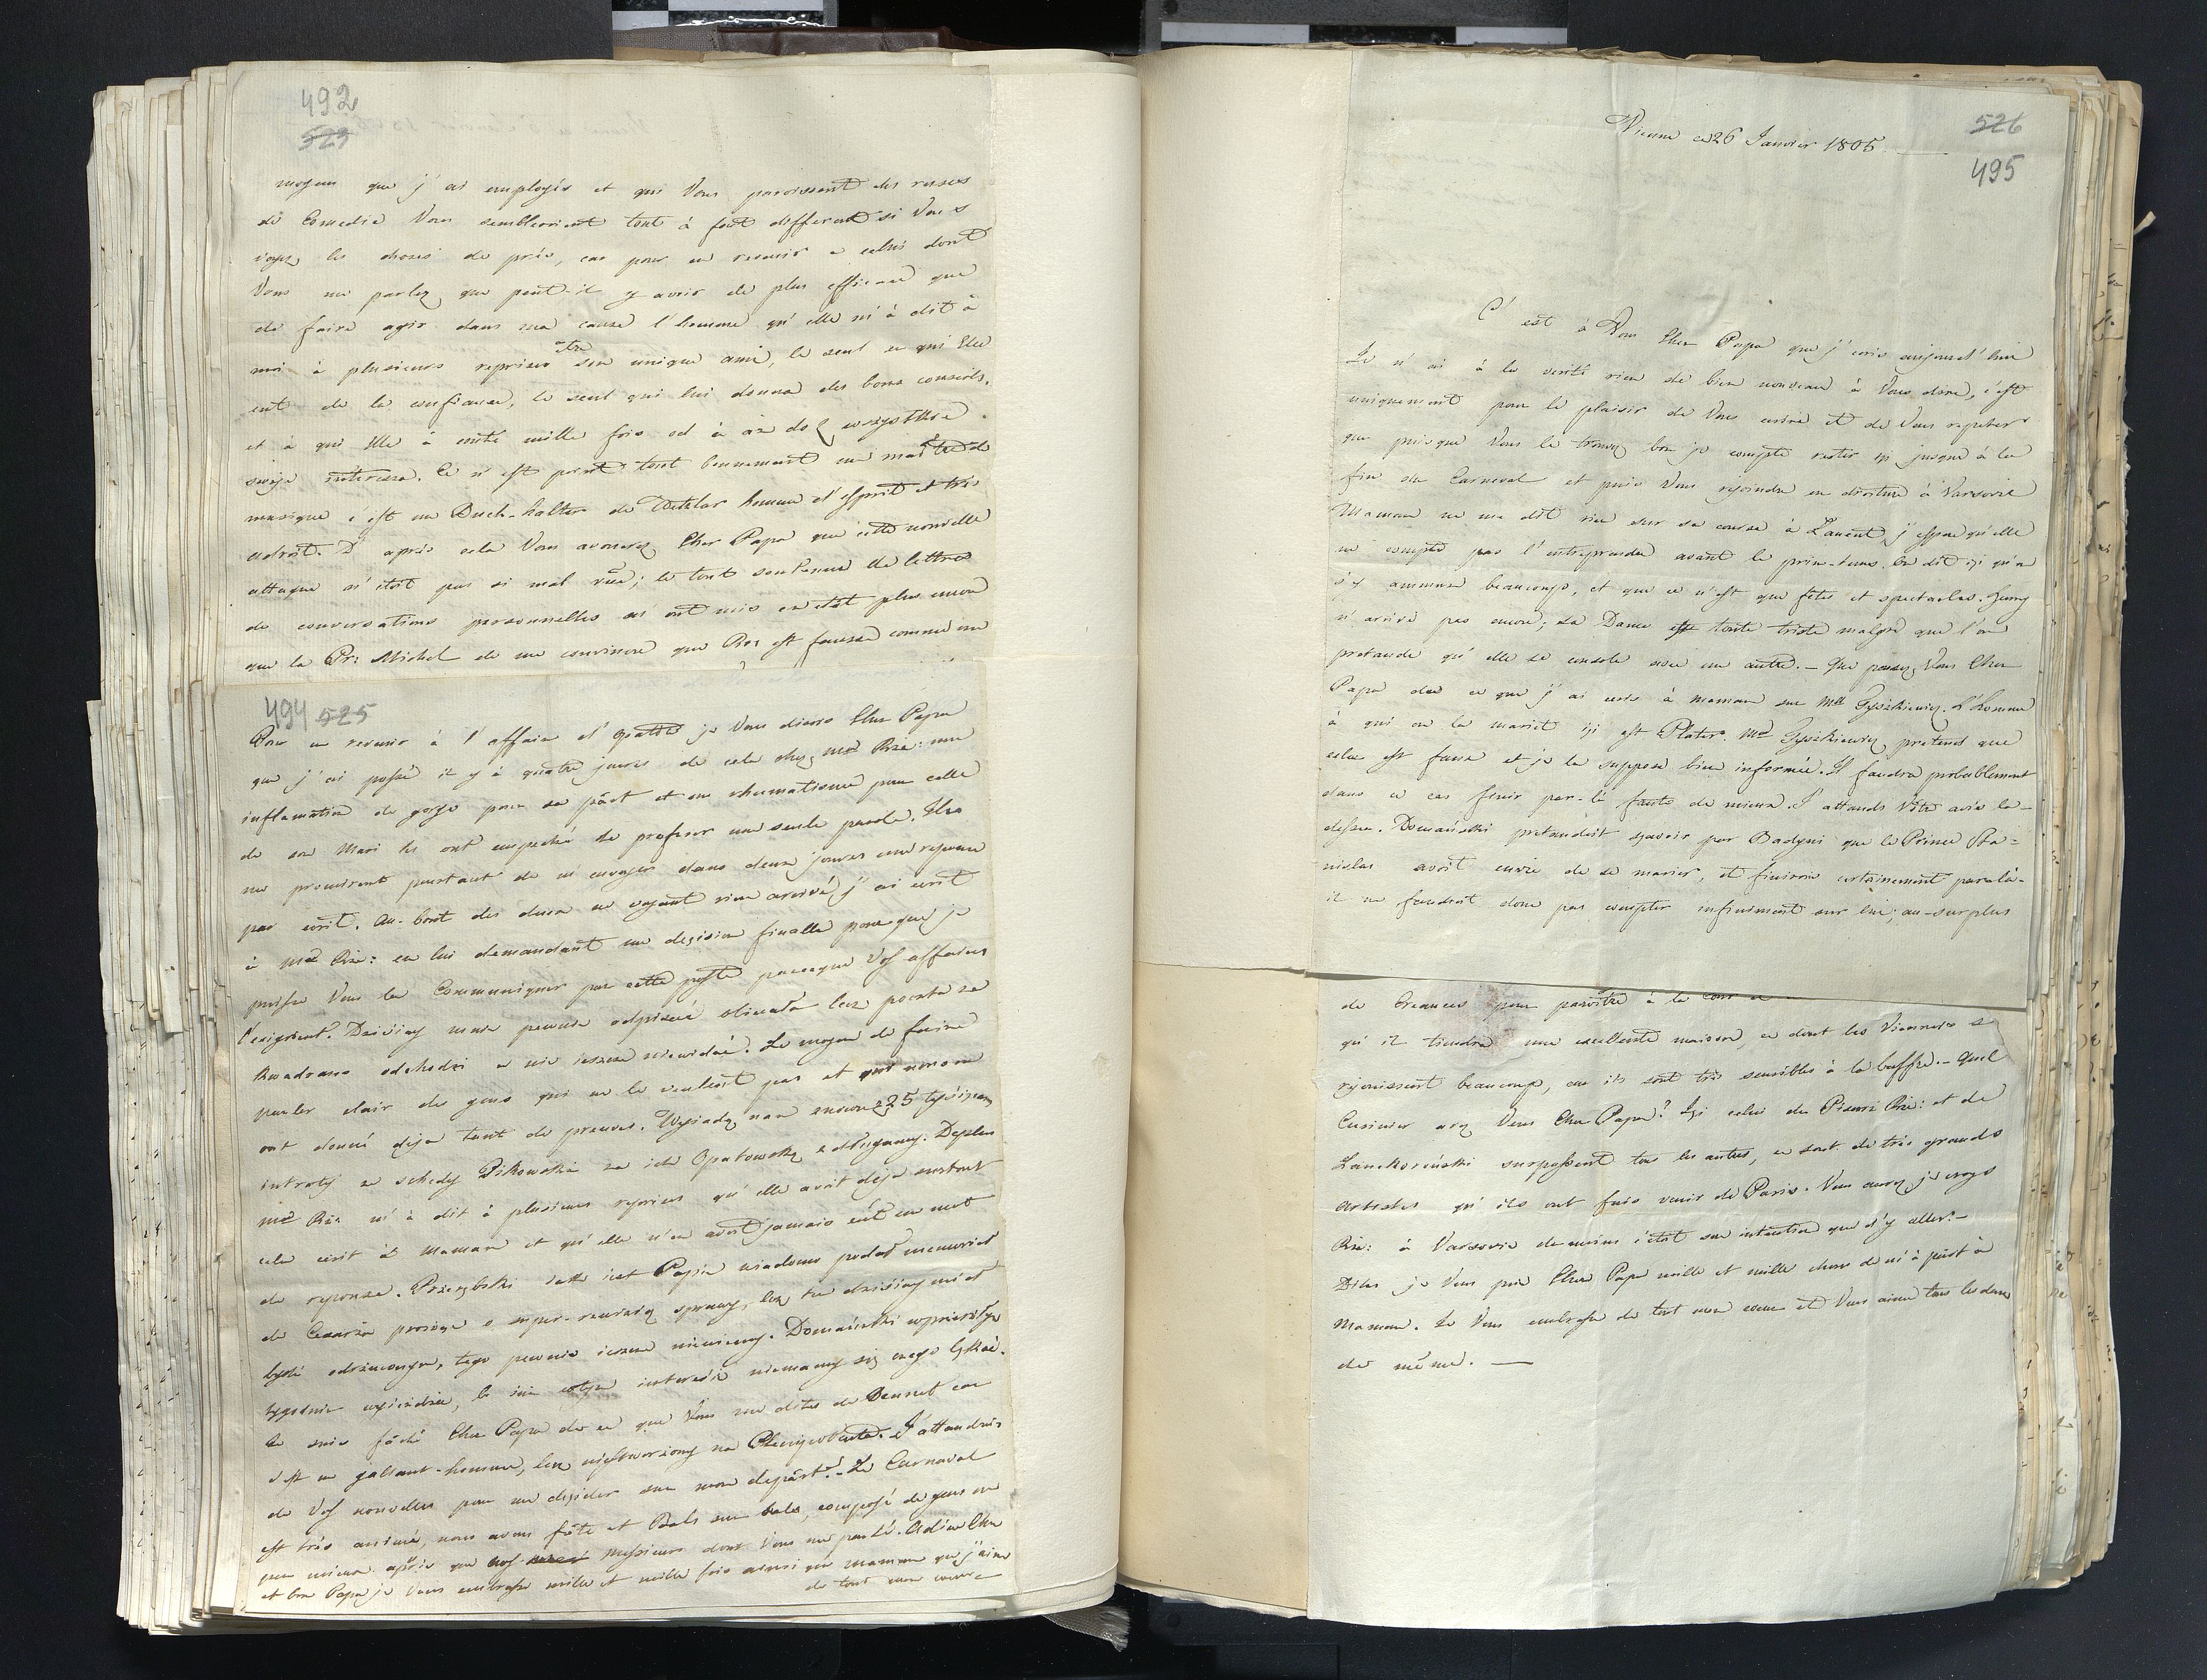 492
523
moyens que j'ai employés et qui Vous paroissent des ruses
de Comedie Vous sembleroient tout à fait different si Vous
voyez les choses de près, car pour en revenir a celui dont
Vous me parlez que peut-il y avoir de plus efficace que
de faire agir dans ma cause l'homme qu'elle m'à dit à
moi à plusieurs reprises être son unique ami, le seul en qui Elle
eut de la confiance, le seul qui lui donna des bons conseils,
et à qui Elle à conté mille fois od a až do z wszystkie
swoje interessa. Ce n'est point tout bonnement un maître de
musique c'est un Buch-halter de homme d'esprit et très
adroit. D'après cela Vous avouerez Cher Papa que cette nouvelle
attaque n'etoit pas si mal vüe; le tout soutenue de lettres
de conversations personnelles
que la Pr: Michel de me convincre que Rze est fausse comme un
494 525
Pour en revenir à l'affaire je Vous dirois Cher Papa
que j'ai passé il y à quatre jours de cela chez Md Rze: une
inflamation de gorge pour sa part et un rhumatisme pour celle
de son Mari les ont empeché de proferer une seule parole. Ils
me promirent pourtant de m'envoyer dans deux jours une reponse
par ecrit. Au-bout des deux ne voyant rien arrivé j'ai ecrit
à Md Rze: en lui demandant une decision finalle pour que je
puisse Vous la Communiquer par cette poste parceque Vos affaires
l'exigoient. Dzisiay mnie pewnie odpisać obiecała lecz poczta za
kwadrans odchodzi a nic ieszcze niewidać. Le moyen de faire
parler clair des gens qui ne le veulent pas et qui nous en
ont donné deja tant de preuves. 25 tysięcy
intraty za schedy Pikowskie za ich Opatowskę z długamy. Deplus
Md Rze m'à dit à plusieurs reprises qu'elle avoit deja surtout
cela ecrit à Maman et qu'elle n'en avoit jamais eüt un mot
de reponse. Przezybski iak iest Papie wiadomo podał memoriał
do Cesarza prosząc o super-rewizią sprawy, lecz tu dzisiay miał
bydź odrzuconym, tego pewnie ieszcze niewiemy. Domański w przeszłym
tygodniu wyiechał,
Je suis fâché Cher Papa de ce que Vous me dites de Bennet car
c'est un gallant-homme, lecz J'attendrois
de Vos nouvelles pour me decider sur mon depart. Le Carnaval
est très animé, nous avons fête et Bals sur bals, composé de gens un
peu mieux apris que vos messieurs dont Vous me parlé. Adieu Cher
et bon Papa je Vous embrasse mille et mille fois ainsi que maman que j'aime
de tout mon coeur
526
495
Vienne ce 26 Janvier 1805
C'est à Vous Cher Papa que j'ecris aujourd'hui
Je n'ai à la verité rien de bien nouveau à Vous dire, c'est
uniquement pour le plaisir de Vous ecrire et de Vous repeter
que puisque Vous le trouvez bon je compte rester içi jusque à la
fin du Carneval et puis Vous rejoindre en droiture à Varsovie
Maman ne me dit rien sur sa course à Łancut, j'espere qu'elle
ne compte pas l'entreprendre avant le prin-tems. On dit içi qu'on
s'y ammuse beaucoup, et que ce n'est que fêtes et spectacles.
n'arrive pas encore; sa Dame est toute triste malgré que l'on
pretende qu'elle se console avec un autre. — Que pensez Vous Cher
Papa de ce que j'ai ecris à maman sur Mlle Tyszkiewicz. L'homme
à qui on la mariet içi est Plater. Md Tyszkiewicz pretend que
cela est faux et je la suppose bien informée. Il faudra probablement
dans ce cas finir par-là faute de mieux. J'attends Vôtre avis la-
dessu. Domański pretendoit sçavoir par Badyni que le Prince Sta=
nislas avoit envie de se marier, et finiroit certainement par là-
il ne faudroit donc pas compter infiniment sur lui; au-surplus
de Creances pour paroître à la cour
qu'il tiendra une excellente maison, ce dont les Viennois se
rejouissent beaucoup, car ils sont très sensibles à la buffre. — Quel
Cuisinier avez Vous Cher Papa? Içi celui du Pisarz Rze: et de
Lanckoroński surpassent tous les autres, ce sont de très grands
artistes qu'ils ont fais venir de Paris. Vous aurez je crois
Rze: à Varsovie du moins c'étoit son intention que d'y aller. —
Dites je Vous prie Cher Papa mille et mille choses de m'à part à
Maman. Je Vous embrasse de tout mon coeur et Vous aime tous les deux
de même. —